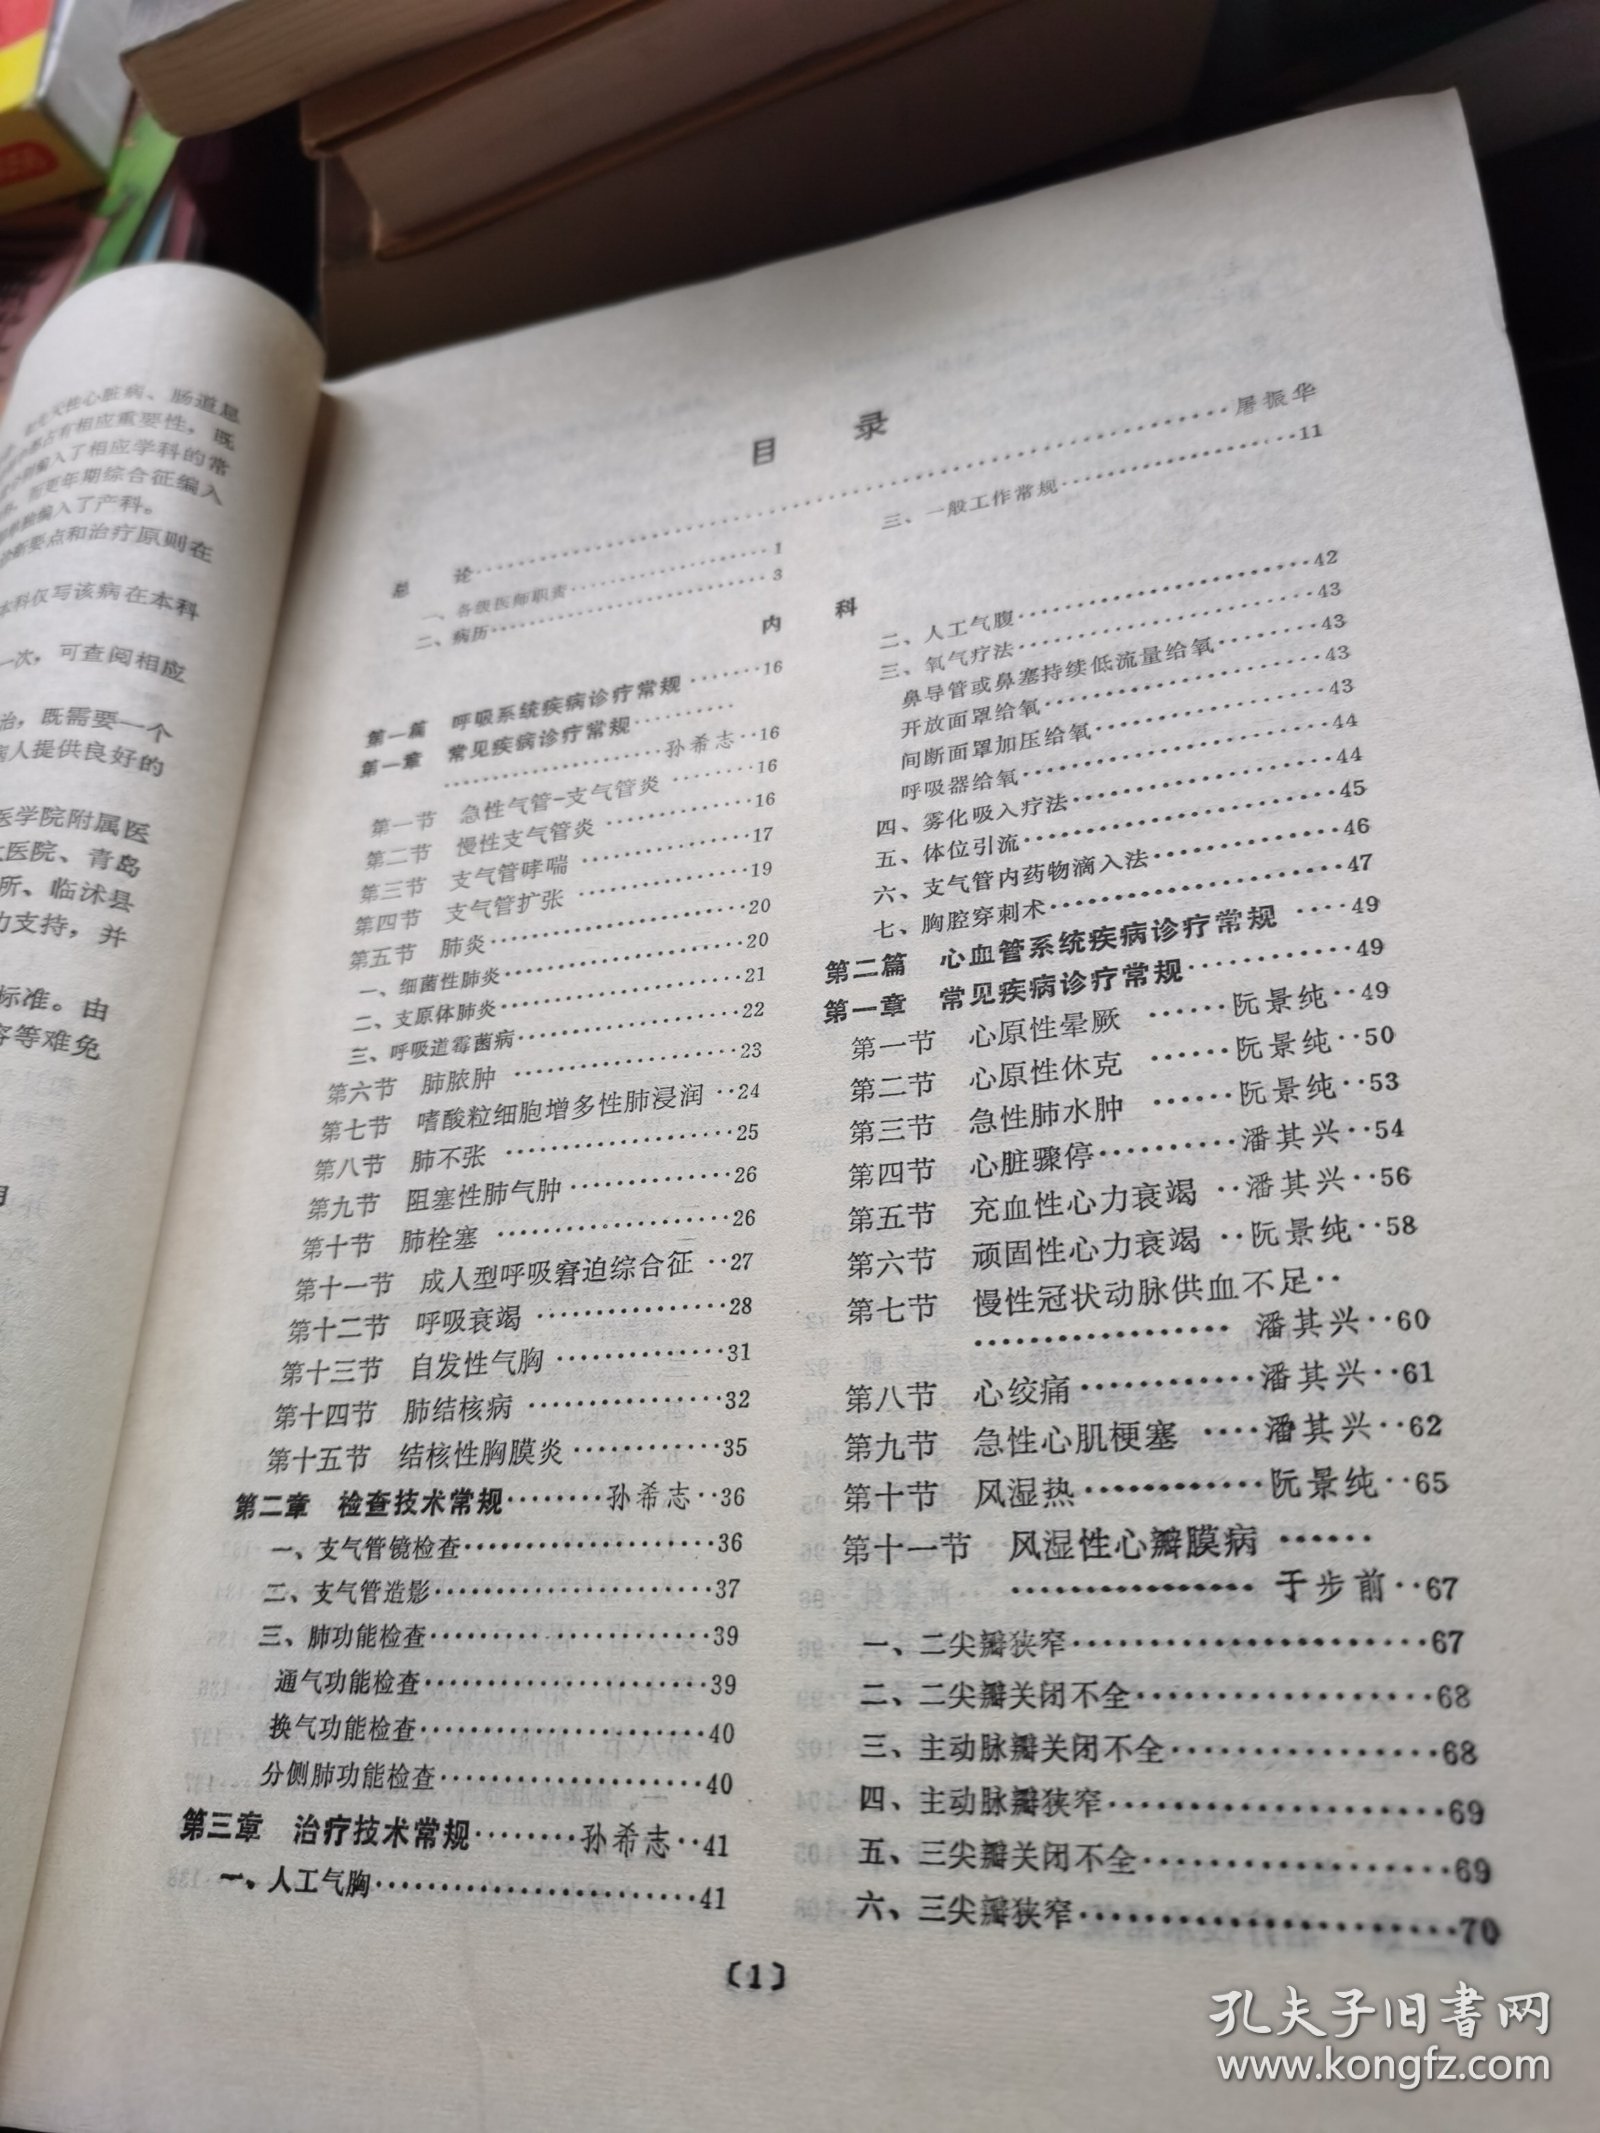 性心脏病、肠道息
占有相应重要性，既
编入了相应学科的常
更年期综合征编入
编入了产科。
诊断要点和治疗原则在
本科仅写该病在本科
一次，可查阅相应
治，既需要一个
病人提供良好的
医学院附属医
医院、青岛
所、临沭县
力支持，并
标准。由
容等难免
目 录
总 论……屠振华
一、各级医师职责……1
二、病历……3
三、一般工作常规……11
内 科
第一篇 呼吸系统疾病诊疗常规……16
第一章 常见疾病诊疗常规……
……孙希志··16
第一节 急性气管-支气管炎……16
第二节 慢性支气管炎……16
第三节 支气管哮喘……17
第四节 支气管扩张……19
第五节 肺炎……20
一、细菌性肺炎……20
二、支原体肺炎……21
三、呼吸道霉菌病……22
第六节 肺脓肿……23
第七节 嗜酸粒细胞增多性肺浸润··24
第八节 肺不张……25
第九节 阻塞性肺气肿……26
第十节 肺栓塞……26
第十一节 成人型呼吸窘迫综合征··27
第十二节 呼吸衰竭……28
第十三节 自发性气胸……31
第十四节 肺结核病……32
第十五节 结核性胸膜炎……35
第二章 检查技术常规……孙希志··36
一、支气管镜检查……36
二、支气管造影……37
三、肺功能检查……39
通气功能检查……39
换气功能检查……40
分侧肺功能检查……40
第三章 治疗技术常规……孙希志··41
一、人工气胸……41
二、人工气腹……42
三、氧气疗法……43
鼻导管或鼻塞持续低流量给氧……43
开放面罩给氧……43
间断面罩加压给氧……43
呼吸器给氧……44
四、雾化吸入疗法……44
五、体位引流……45
六、支气管内药物滴入法……46
七、胸腔穿刺术……47
第二篇 心血管系统疾病诊疗常规……49
第一章 常见疾病诊疗常规……49
第一节 心原性晕厥……阮景纯··49
第二节 心原性休克……阮景纯··50
第三节 急性肺水肿……阮景纯··53
第四节 心脏骤停……潘其兴··54
第五节 充血性心力衰竭··潘其兴··56
第六节 顽固性心力衰竭··阮景纯··58
第七节 慢性冠状动脉供血不足··
……潘其兴··60
第八节 心绞痛……潘其兴··61
第九节 急性心肌梗塞……潘其兴··62
第十节 风湿热……阮景纯··65
第十一节 风湿性心瓣膜病……
……于步前··67
一、二尖瓣狭窄……67
二、二尖瓣关闭不全……68
三、主动脉瓣关闭不全……68
四、主动脉瓣狭窄……69
五、三尖瓣关闭不全……69
六、三尖瓣狭窄……70
〔1〕
孔夫子旧书网
www.kongfz.com